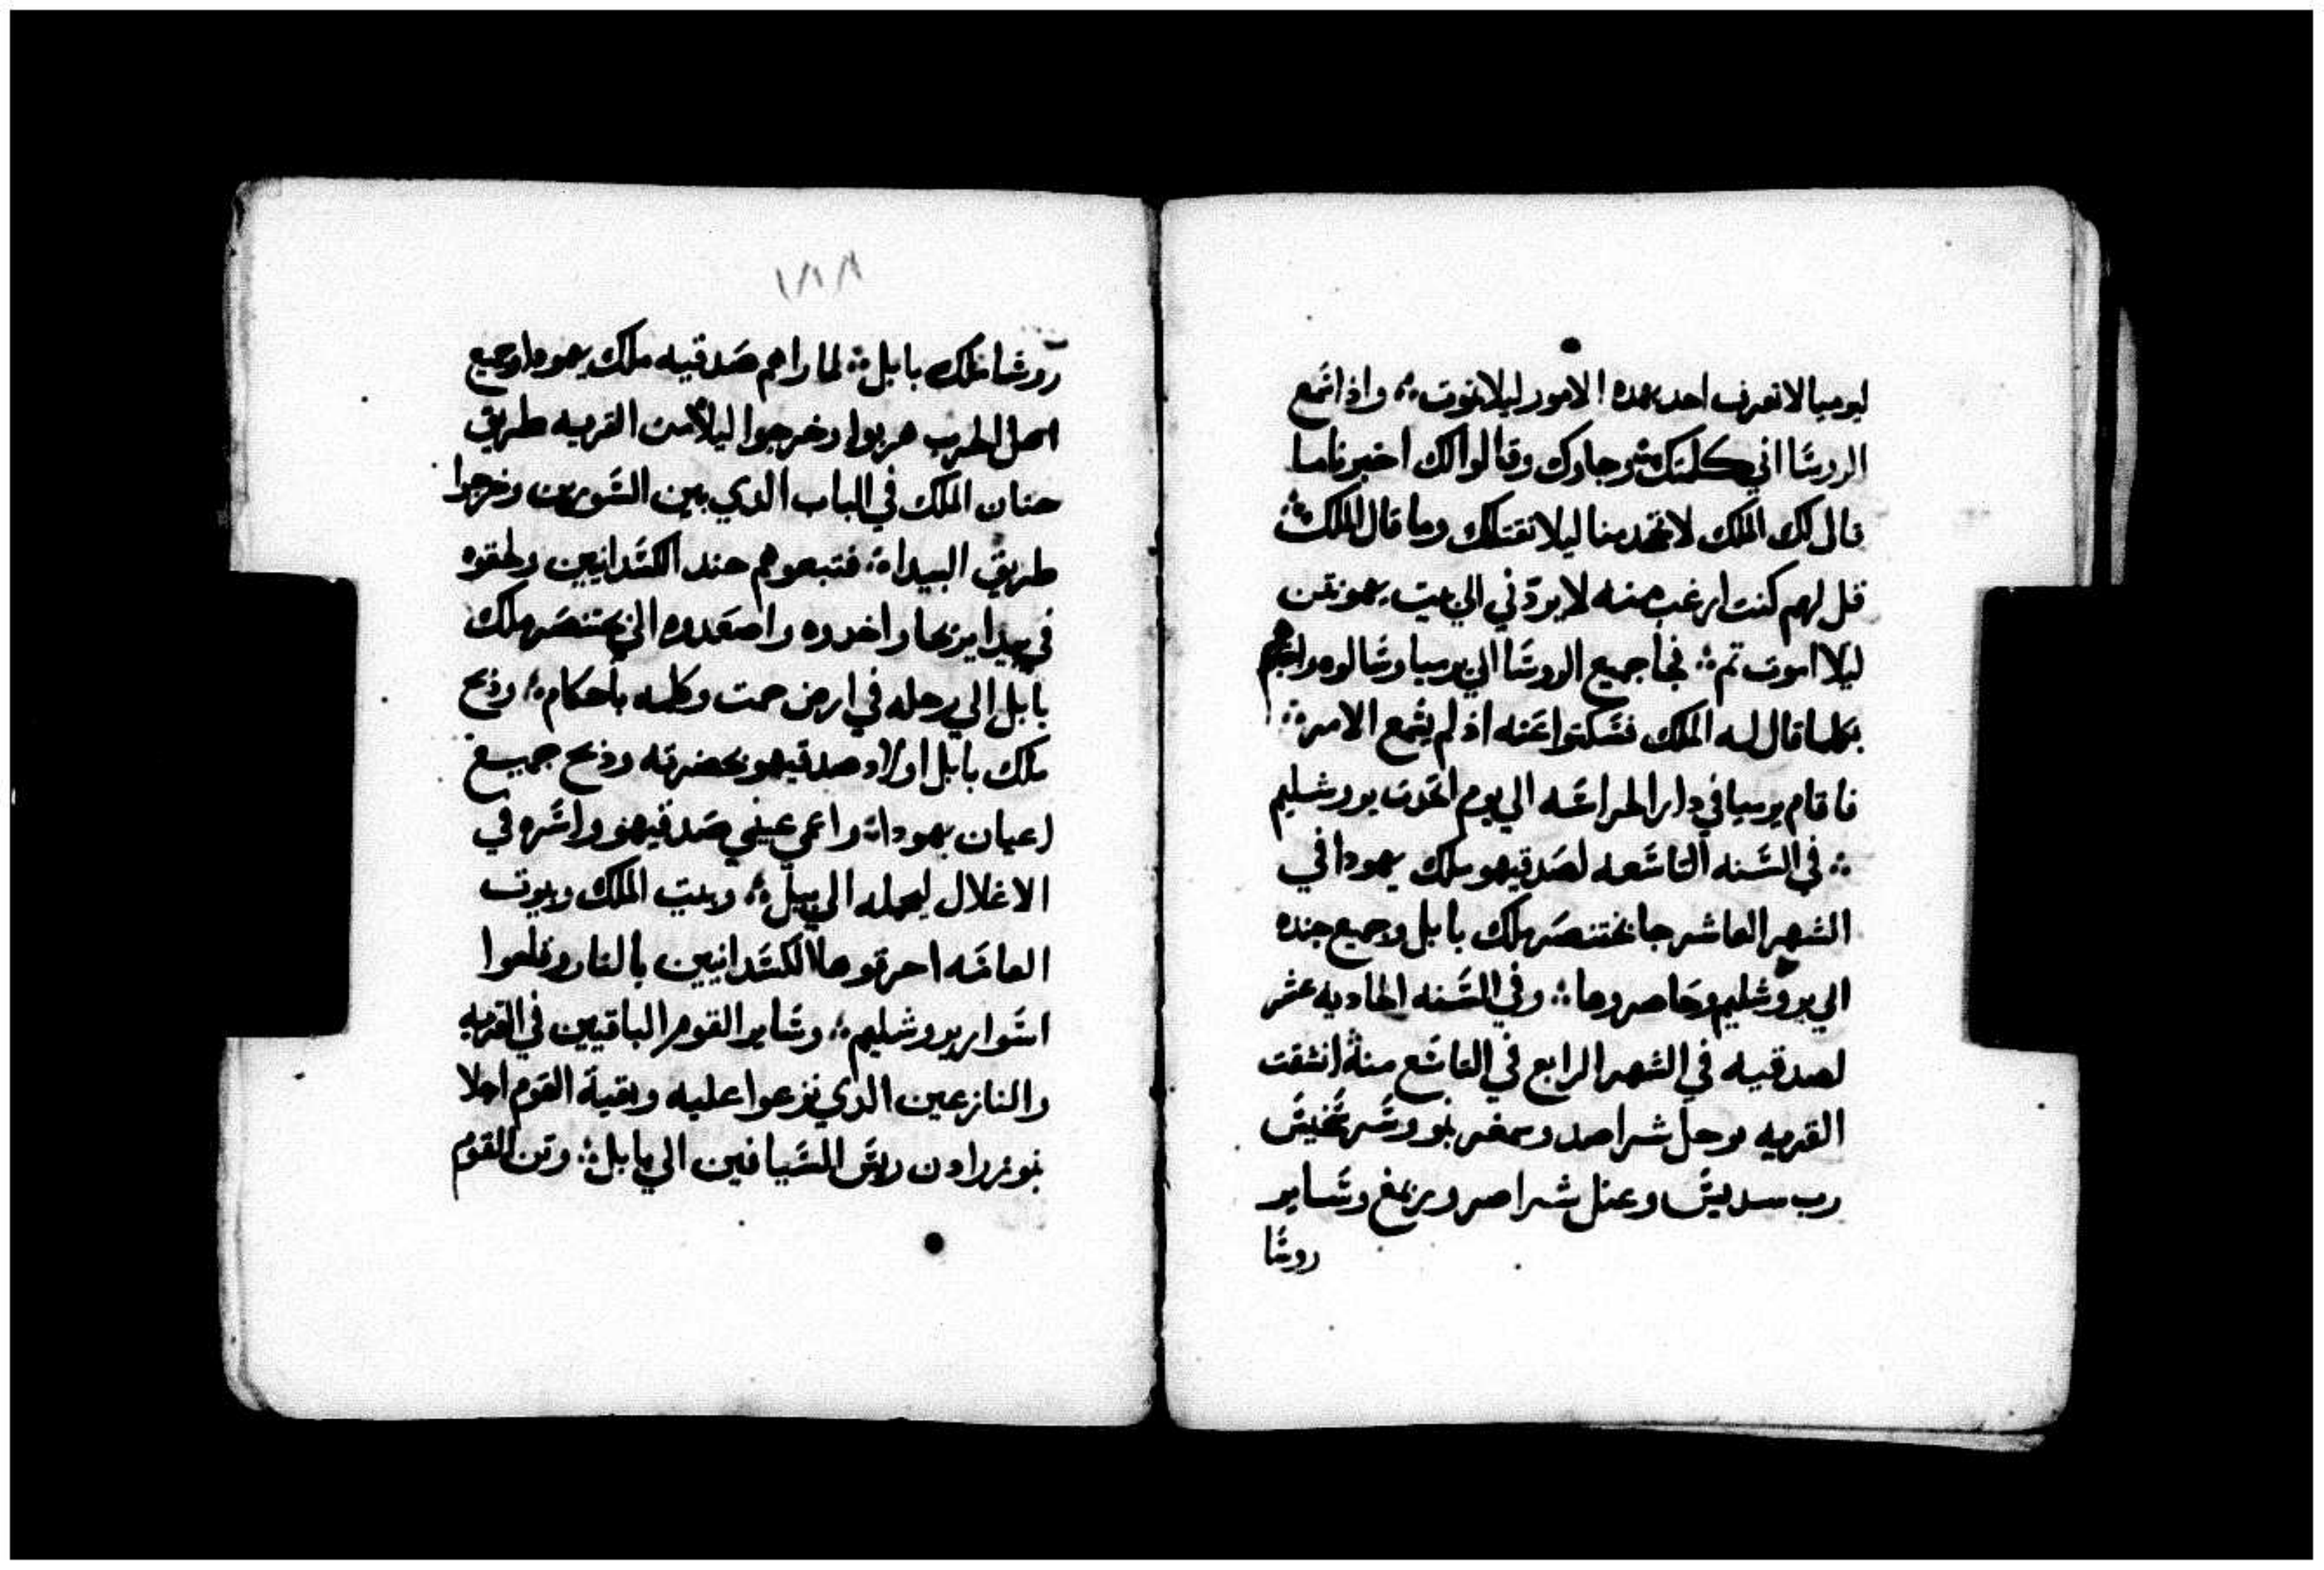 ليوميا لا تعرف احد بهده الامور ليلا تموت ؞ واذا سمع
الروسا اني كلمتك وجاوك وقالوا لك اخبرنا ما
قال لك الملك لا تجحد منا ليلا نقتلك وما قال الملك ؞
قل لهم كنت ارغب منه لا يردني الي بيت يهونتن
ليلا اموت تم ؞ فجا جميع الروسا الي يرميا وسالوه
بكلما قال له الملك فسكتوا عنه اذ لم يسمع الامر ؞
فاقام يرميا في دار الحراسه الي يوم اخدت يروشليم
؞ في السنه التاسعه لصدقيهو ملك يهودا في
الشهر العاشر جا بختنصر ملك بابل وجميع جنده
الي يروشليم وحاصروها ؞ وفي السنه الحاديه عشر
لصدقيه في الشهر الرابع في التاسع منه انشقت
القريه
وساير
روسا
١٨٨
روسا ملك بابل ؞ لما راهم صدقيه ملك يهودا وجميع
اهل الحرب هربوا وخرجوا ليلا من القريه طريق
جنان الملك في الباب الدي بين السورين وخرجوا
طريق البيداه ؞ فتبعوهم جند الكسدانيين ولحقوه
في بيدا يريحا واخدوه واصعدوه الي بختنصر ملك
بابل الي رحله في ارض حمت وكلمه باحكام ؞ ودبح
ملك بابل اولاد صدقيهو بحضرته ودبح جميع
اعيان يهودا ؞ واعمي عيني صدقيهو واسره في
الاغلال ليحمله الي ببل ؞ وبيت الملك وبيوت
العامه احرقوها الكسدانيين بالنار وقلعوا
اسوار يروشليم ؞ وساير القوم الباقيين في القريه
والنازعين الدي نزعوا عليه وبقية القوم اجلا
نبوزرادن ريس السيافين الي بابل ؞ ومن القوم